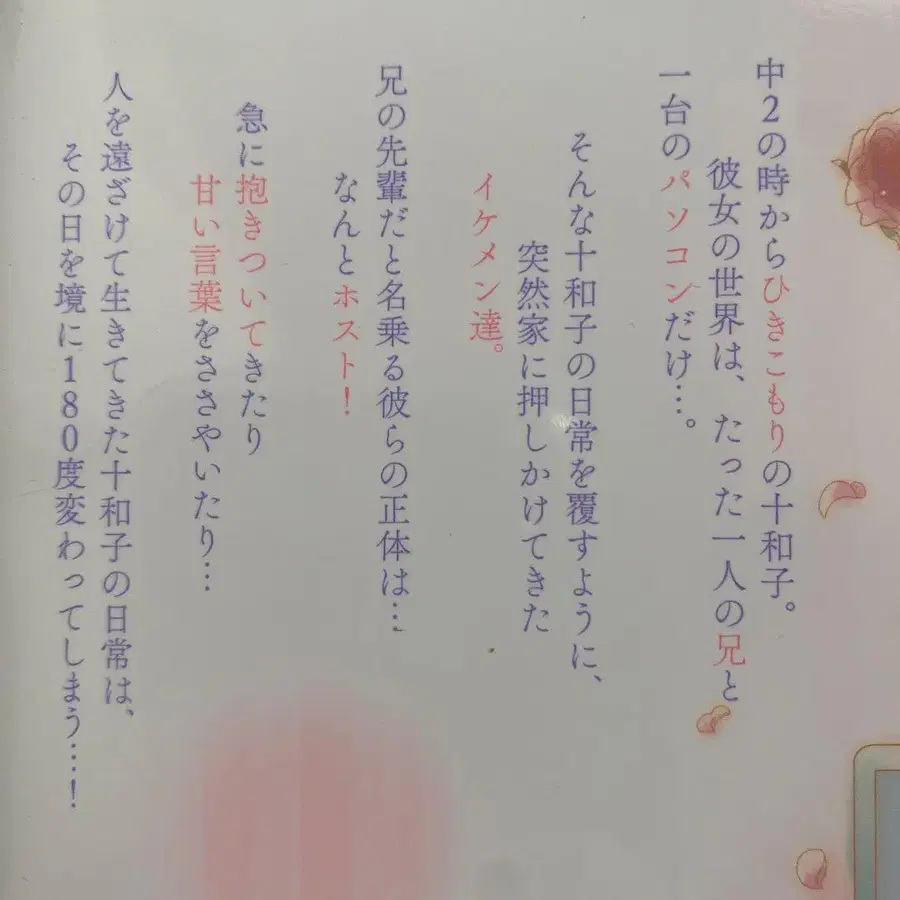 中2の時からひきこもりの十和子。
彼女の世界は、たった一人の兄と
一台のパソコンだけ…。
そんな十和子の日常を覆すように、
突然家に押しかけてきた
イケメン達。
兄の先輩だと名乗る彼らの正体は…
なんとホスト！
急に抱きついてきたり
甘い言葉をささやいたり…
人を遠ざけて生きてきた十和子の日常は、
その日を境に180度変わってしまう…！